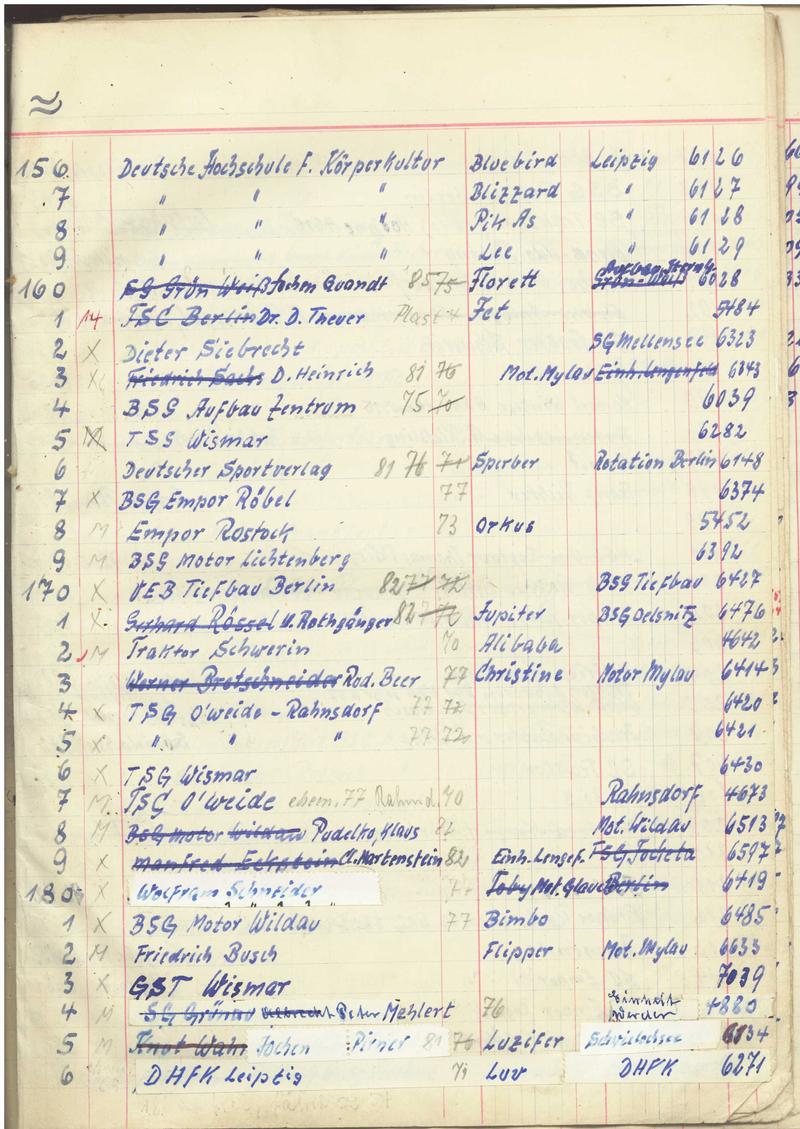 156 Deutsche Hochschule f. Körperkultur Bluebird Leipzig 6126
7 " " " Blizzard " 6127
8 " " " Pik As " 6128
9 " " " Lee " 6129
160 SG Grün Weiß Jochen Quandt 85 75 Florett Grün-Weiß 6028
1 M TSC Berlin Dr. D. Theuer Plast 4 Fet 5484
2 X Dieter Siebrecht SG Mellensee 6323
3 X Friedrich Sachs D. Heinrich 81 76 Mot. Mylau Einh. Lengenfeld 6343
4 BSG Aufbau Zentrum 75 70 6039
5 X TSG Wismar 6282
6 Deutscher Sportverlag 81 76 71 Sperber Rotation Berlin 6148
7 X BSG Empor Röbel 77 6374
8 M Empor Rostock 73 Orkus 5452
9 M BSG Motor Lichtenberg 6392
170 X VEB Tiefbau Berlin 82 77 72 BSG Tiefbau 6427
1 X Gerhard Rössel U. Rothgänger 82 Jupiter BSG Oelsnitz 6476
2 M Traktor Schwerin 70 Alibaba 4642
3 Werner Bretschneider Rod. Beer 77 Christine Motor Mylau 6414
4 X TSG O'weide - Rahnsdorf 77 72 6420
5 X " " " 77 72 6421
6 X TSG Wismar 6430
7 M TSG O'weide ehem. 77 Rahnd. 70 Rahnsdorf 4673
8 M BSG Motor Wildau Pudelko, Klaus 82 Mot. Wildau 6513
9 X Manfred Eckstein Cl. Martenstein 82 Einh. Lengef. TSG Jocketa 6597
180 X Wolfram Schneider Toby Mot. Glauc Berlin 6419
1 X BSG Motor Wildau 77 Bimbo 6485
2 M Friedrich Busch Flipper Mot. Mylau 6633
3 X GST Wismar 7039
4 M SG Grünau Albrecht Peter Mehlert 76 Einheit Werder 4880
5 M Knut Wahr Jochen Pirner 81 76 Luzifer Schwielochsee 6134
6 DHFK Leipzig Luv DHFK 6271